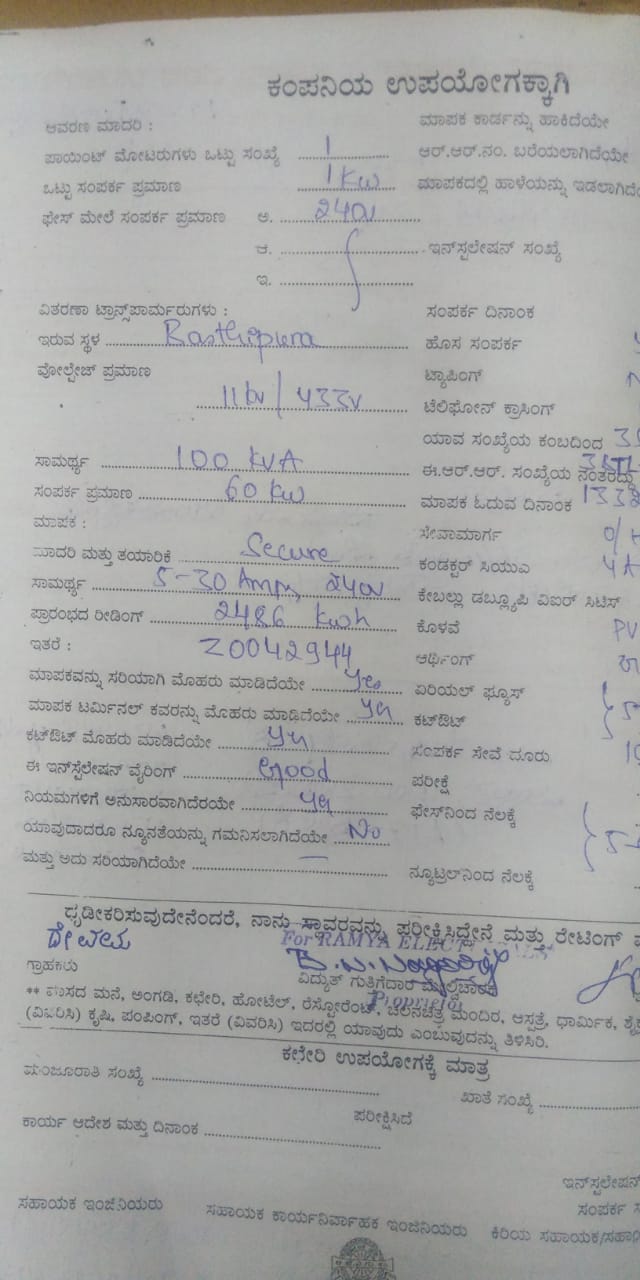 ಕಂಪನಿಯ ಉಪಯೋಗಕ್ಕಾಗಿ
ಆವರಣ ಮಾದರಿ : ಮಾಪಕ ಕಾರ್ಡನ್ನು ಹಾಕಿದೆಯೇ
ಪಾಯಿಂಟ್ ಮೋಟರುಗಳು ಒಟ್ಟು ಸಂಖ್ಯೆ 1 ಆರ್.ಆರ್.ನಂ. ಬರೆಯಲಾಗಿದೆಯೇ
ಒಟ್ಟು ಸಂಪರ್ಕ ಪ್ರಮಾಣ 1 KW ಮಾಪಕದಲ್ಲಿ ಹಾಳೆಯನ್ನು
ಫೇಸ್ ಮೇಲೆ ಸಂಪರ್ಕ ಪ್ರಮಾಣ ಅ. 240v
ಆ. ಇನ್‌ಸ್ಟಲೇಷನ್ ಸಂಖ್ಯೆ
ಇ.
ವಿತರಣಾ ಟ್ರಾನ್ಸ್‌ಪಾರ್ಮರುಗಳು : ಸಂಪರ್ಕ ದಿನಾಂಕ
ಇರುವ ಸ್ಥಳ Rasthipura ಹೊಸ ಸಂಪರ್ಕ
ವೋಲ್ಟೇಜ್ ಪ್ರಮಾಣ ಟ್ಯಾಪಿಂಗ್
11kv / 433v ಟೆಲಿಫೋನ್ ಕ್ರಾಸಿಂಗ್
ಯಾವ ಸಂಖ್ಯೆಯ ಕಂಬದಿಂದ
ಸಾಮರ್ಥ್ಯ 100 KVA ಈ.ಆರ್.ಆರ್. ಸಂಖ್ಯೆಯ ನಂತರದ್ದು
ಸಂಪರ್ಕ ಪ್ರಮಾಣ 60 KW ಮಾಪಕ ಓದುವ ದಿನಾಂಕ
ಮಾಪಕ : ಸೇವಾಮಾರ್ಗ
ಮಾದರಿ ಮತ್ತು ತಯಾರಿಕೆ Secure ಕಂಡಕ್ಟರ್ ಸಿಯುಎ
ಸಾಮರ್ಥ್ಯ 5-30 Amps, 240v ಕೇಬಲ್ಲು ಡಬ್ಲ್ಯೂಪಿ ವಿಐರ್ ಸಿಟಿಸ್
ಪ್ರಾರಂಭದ ರೀಡಿಂಗ್ 2486 Kwh ಕೊಳವೆ
ಇತರೆ : Z0042944 ಆರ್ಥಿಂಗ್
ಮಾಪಕವನ್ನು ಸರಿಯಾಗಿ ಮೊಹರು ಮಾಡಿದೆಯೇ Yes ಏರಿಯಲ್ ಫ್ಯೂಸ್
ಮಾಪಕ ಟರ್ಮಿನಲ್ ಕವರನ್ನು ಮೊಹರು ಮಾಡಿದೆಯೇ Yes ಕಟ್‌ಔಟ್
ಕಟ್‌ಔಟ್ ಮೊಹರು ಮಾಡಿದೆಯೇ Yes ಸಂಪರ್ಕ ಸೇವೆ ದೂರು
ಈ ಇನ್‌ಸ್ಟಲೇಷನ್ ವೈರಿಂಗ್ Good ಪರೀಕ್ಷೆ
ನಿಯಮಗಳಿಗೆ ಅನುಸಾರವಾಗಿದೆರಯೇ Yes ಫೇಸ್‌ನಿಂದ ನೆಲಕ್ಕೆ
ಯಾವುದಾದರೂ ನ್ಯೂನತೆಯನ್ನು ಗಮನಿಸಲಾಗಿದೆಯೇ No
ಮತ್ತು ಅದು ಸರಿಯಾಗಿದೆಯೇ — ನ್ಯೂಟ್ರಲ್‌ನಿಂದ ನೆಲಕ್ಕೆ
ಧೃಡೀಕರಿಸುವುದೇನೆಂದರೆ, ನಾನು ಸ್ಥಾವರವನ್ನು ಪರೀಕ್ಷಿಸಿದ್ದೇನೆ ಮತ್ತು ರೇಟಿಂಗ್
For RAMYA
ಗ್ರಾಹಕರು ವಿದ್ಯುತ್ ಗುತ್ತಿಗೆದಾರ ಮೇಲ್ವಿಚಾರಕ
Proprietor
** ವಾಸದ ಮನೆ, ಅಂಗಡಿ, ಕಛೇರಿ, ಹೋಟೆಲ್, ರೆಸ್ಟೋರೆಂಟ್, ಚಲನಚಿತ್ರ ಮಂದಿರ, ಆಸ್ಪತ್ರೆ, ಧಾರ್ಮಿಕ,
(ವಿವರಿಸಿ) ಕೃಷಿ, ಪಂಪಿಂಗ್, ಇತರೆ (ವಿವರಿಸಿ) ಇದರಲ್ಲಿ ಯಾವುದು ಎಂಬುವುದನ್ನು ತಿಳಿಸಿರಿ.
ಕಛೇರಿ ಉಪಯೋಗಕ್ಕೆ ಮಾತ್ರ
ಮಂಜೂರಾತಿ ಸಂಖ್ಯೆ ಖಾತೆ ಸಂಖ್ಯೆ
ಪರೀಕ್ಷಿಸಿದೆ
ಕಾರ್ಯ ಆದೇಶ ಮತ್ತು ದಿನಾಂಕ
ಇನ್‌ಸ್ಟಲೇಷನ್
ಸಂಪರ್ಕ
ಸಹಾಯಕ ಇಂಜಿನಿಯರು ಸಹಾಯಕ ಕಾರ್ಯನಿರ್ವಾಹಕ ಇಂಜಿನಿಯರು ಕಿರಿಯ